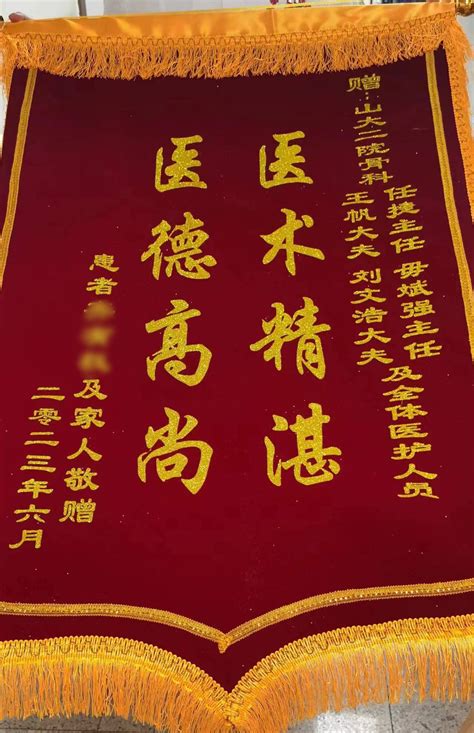 赠：山大二院骨科
任捷主任 毋斌强主任
王帆大夫 刘文浩大夫
及全体医护人员
医术精湛
医德高尚
患者
及家人敬赠
二零二三年六月